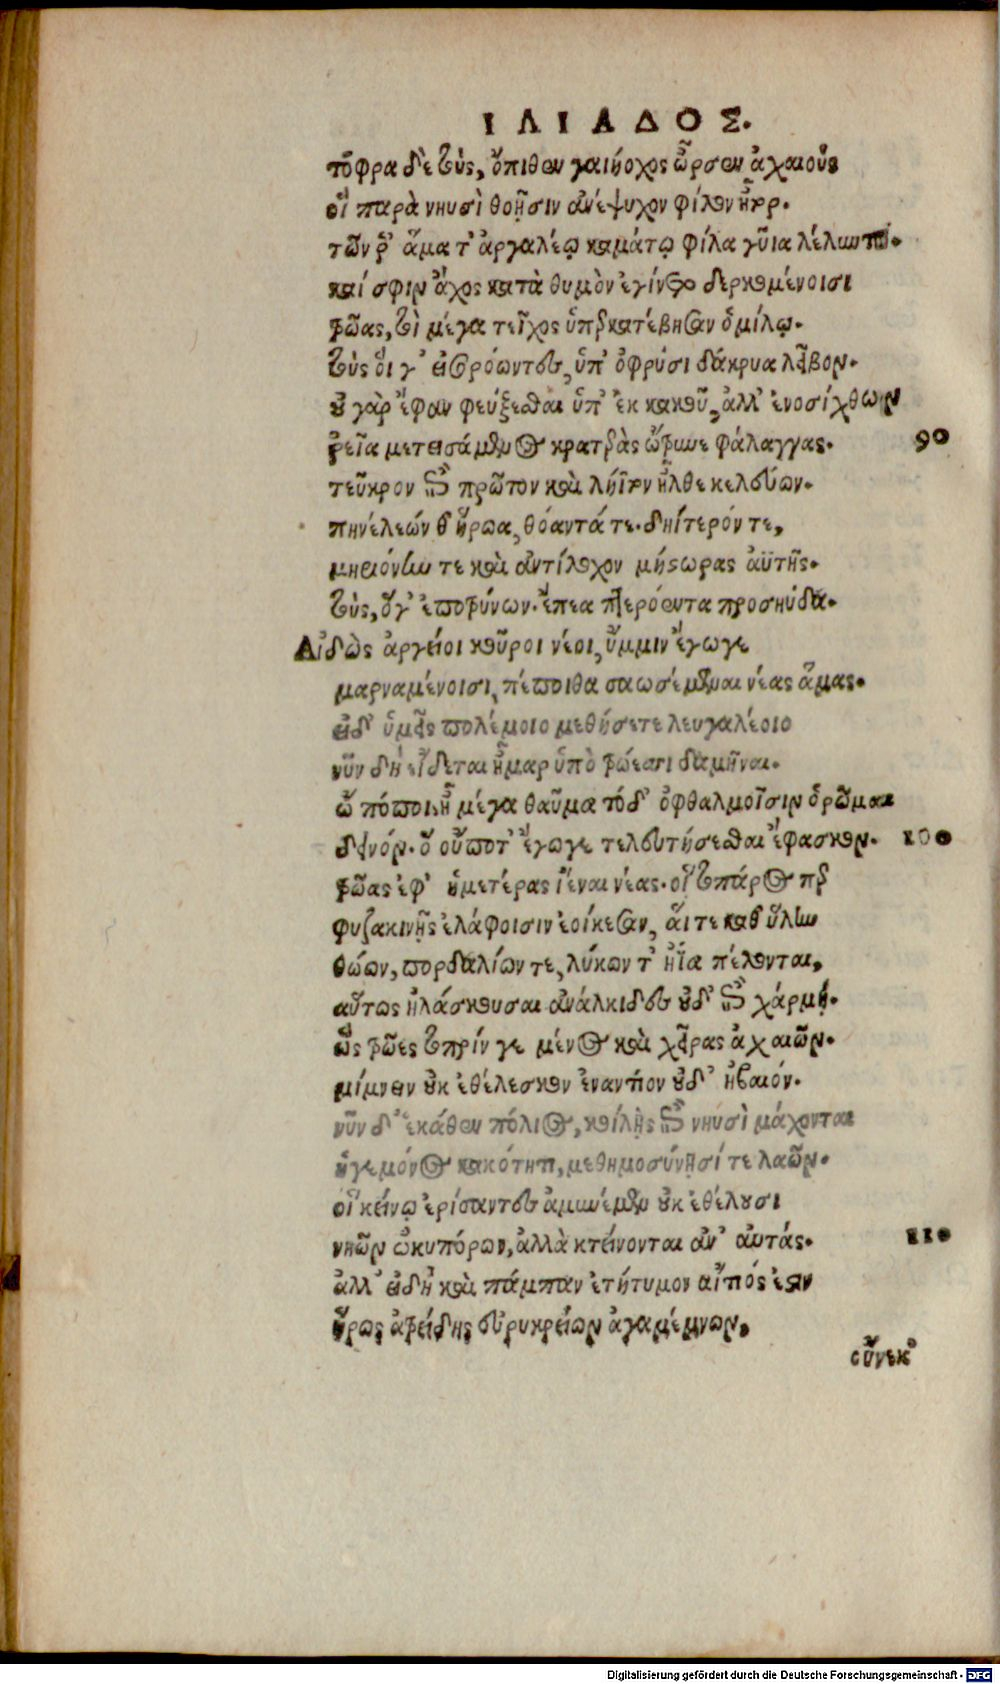 ΙΛΙΑΔΟΣ.
τόφρα δὲ τοὺς, ὄπιθεν γαιήοχος ὦρσεν ἀχαιούς
οἳ παρὰ νηυσὶ θοῇσιν ἀνέψυχον φίλον ἦτορ.
τῶν ῥ' ἅμα τ' ἀργαλέῳ καμάτῳ φίλα γῦια λέλυντο.
καί σφιν ἄχος κατὰ θυμὸν ἐγίνετο δερκομένοισι
τρῶας, τοὶ μέγα τεῖχος ὑπερκατέβησαν ὁμίλῳ.
τοὺς οἵ γ' εἰσορόωντες, ὑπ' ὀφρύσι δάκρυα λεῖβον.
οὐ γὰρ ἔφαν φεύξεσθαι ὑπ' ἐκ κακοῦ, ἀλλ' ἐνοσίχθων
ῥεῖα μετεισάμενος κρατερὰς ὤτρυνε φάλαγγας. 90
τεῦκρον ἔπι πρῶτον καὶ λήϊτον ἦλθε κελεύων.
πηνέλεών θ' ἥρωα, θόαντά τε. δηίπυρόν τε,
μηριόνην τε καὶ ἀντίλοχον μήστωρας ἀϋτῆς.
τοὺς, ὅγ' ἐποτρύνων. ἔπεα πτερόεντα προσηύδα.
Αἰδὼς ἀργεῖοι κοῦροι νέοι, ὔμμιν ἔγωγε
μαρναμένοισι, πέποιθα σαωσέμεναι νέας ἁμάς.
εἰ δ' ὑμεῖς πολέμοιο μεθήσετε λευγαλέοιο
νῦν δὴ εἴδεται ἦμαρ ὑπὸ τρώεσσι δαμῆναι.
ὢ πόποι ἦ μέγα θαῦμα τόδ' ὀφθαλμοῖσιν ὁρῶμαι
δεινόν. ὃ οὔποτ' ἔγωγε τελευτήσεσθαι ἔφασκον. 100
τρῶας ἐφ' ἡμετέρας ἰέναι νέας. οἳ τοπάρος περ
φυζακινῇς ἐλάφοισιν ἐοίκεσαν, αἵ τε καθ' ὕλην
θώων, πορδαλίων τε, λύκων τ' ἤϊα πέλονται,
αὔτως ἠλάσκουσαι ἀνάλκιδες οὐδ' ἔπι χάρμη.
ὣς τρῶες τοπρίν γε μένος καὶ χεῖρας ἀχαιῶν.
μίμνειν οὐκ ἐθέλεσκον ἐναντίον οὐδ' ἠβαιόν.
νῦν δ' ἑκάθεν πόλιος, κοίλῃς ἔπι νηυσὶ μάχονται
ἡγεμόνος κακότητι, μεθημοσύνῃσί τε λαῶν.
οἳ κείνῳ ἐρίσαντες ἀμυνέμεν οὐκ ἐθέλουσι
νηῶν ὠκυπόρων, ἀλλὰ κτείνονται ἀν' αὐτάς. 110
ἀλλ' εἰ δὴ καὶ πάμπαν ἐτήτυμον αἴτιός ἐστιν
ἥρως ἀτρείδης εὐρυκρείων ἀγαμέμνων,
οὕνεκ'
Digitalisierung gefördert durch die Deutsche Forschungsgemeinschaft - DFG